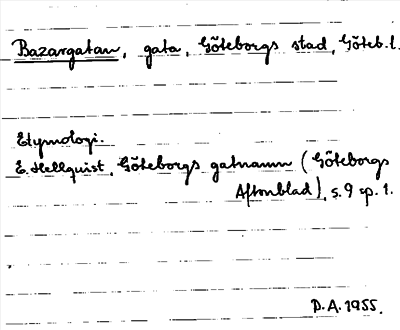 Bazargatan, gata, Göteborgs stad, Göteb. l.
Etymologi.
E. Hellquist, Göteborgs gatnamn (Göteborgs
Aftonblad), s. 9 sp. 1.
D. A. 1955.